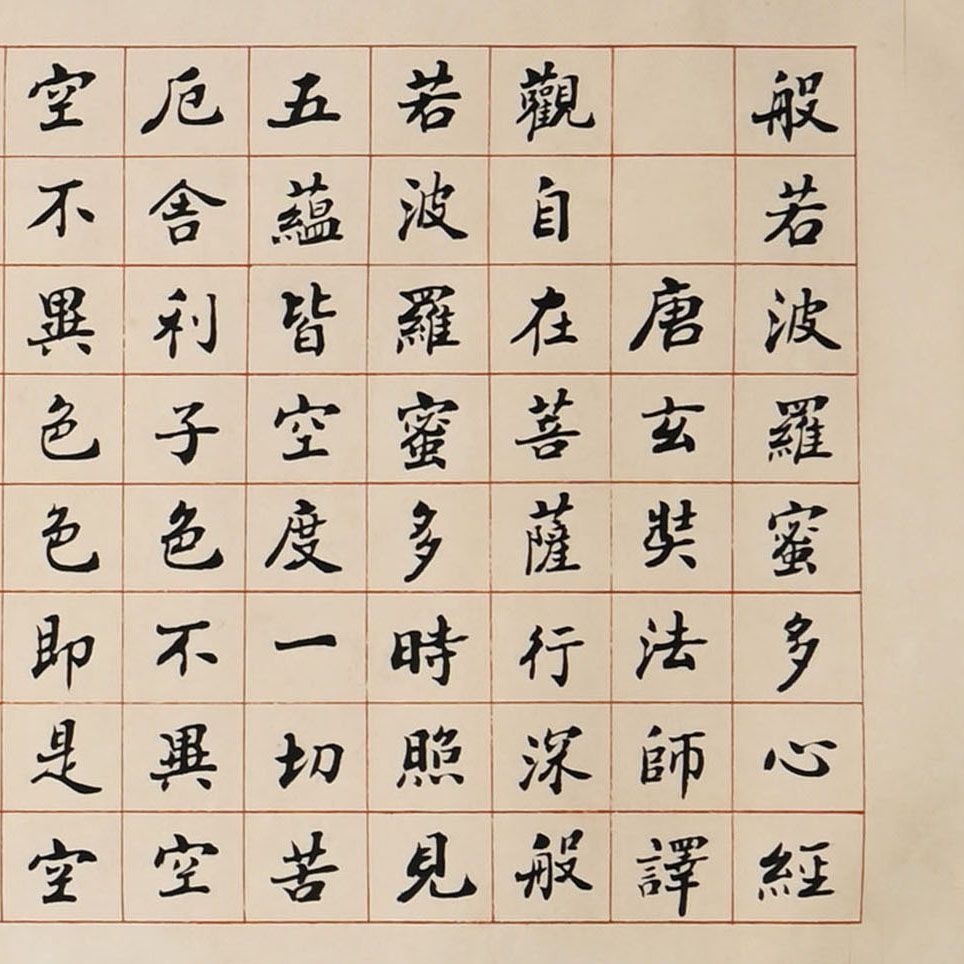 般若波羅蜜多心經
唐玄奘法師譯
觀自在菩薩行深般
若波羅蜜多時照見
五蘊皆空度一切苦
厄舍利子色不異空
空不異色色即是空